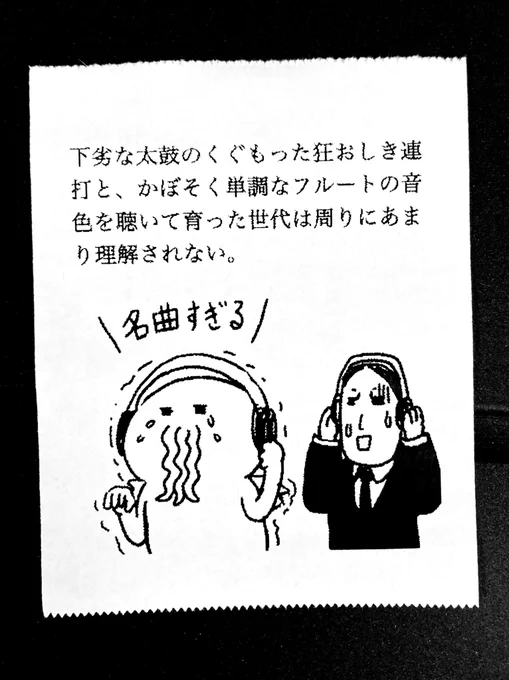 下劣な太鼓のくぐもった狂おしき連
打と、かぼそく単調なフルートの音
色を聴いて育った世代は周りにあま
り理解されない。
名曲すぎる